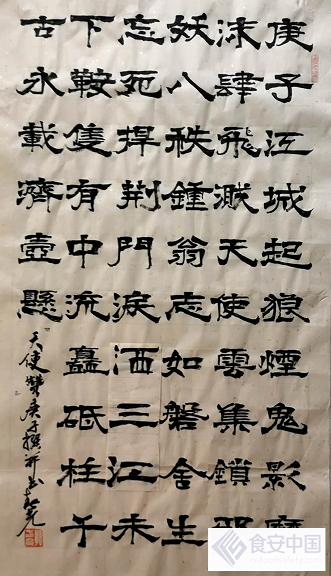 庚子江城起狼煙鬼影魔
沫肆飛濺天使雲集鎖邪
妖八秩鍾翁志如磐舍生
忘死捍荆門淚洒三江未
下鞍隻有中流矗砥柱千
古永載濟壺懸
天使讚庚子撰并书
食安中国